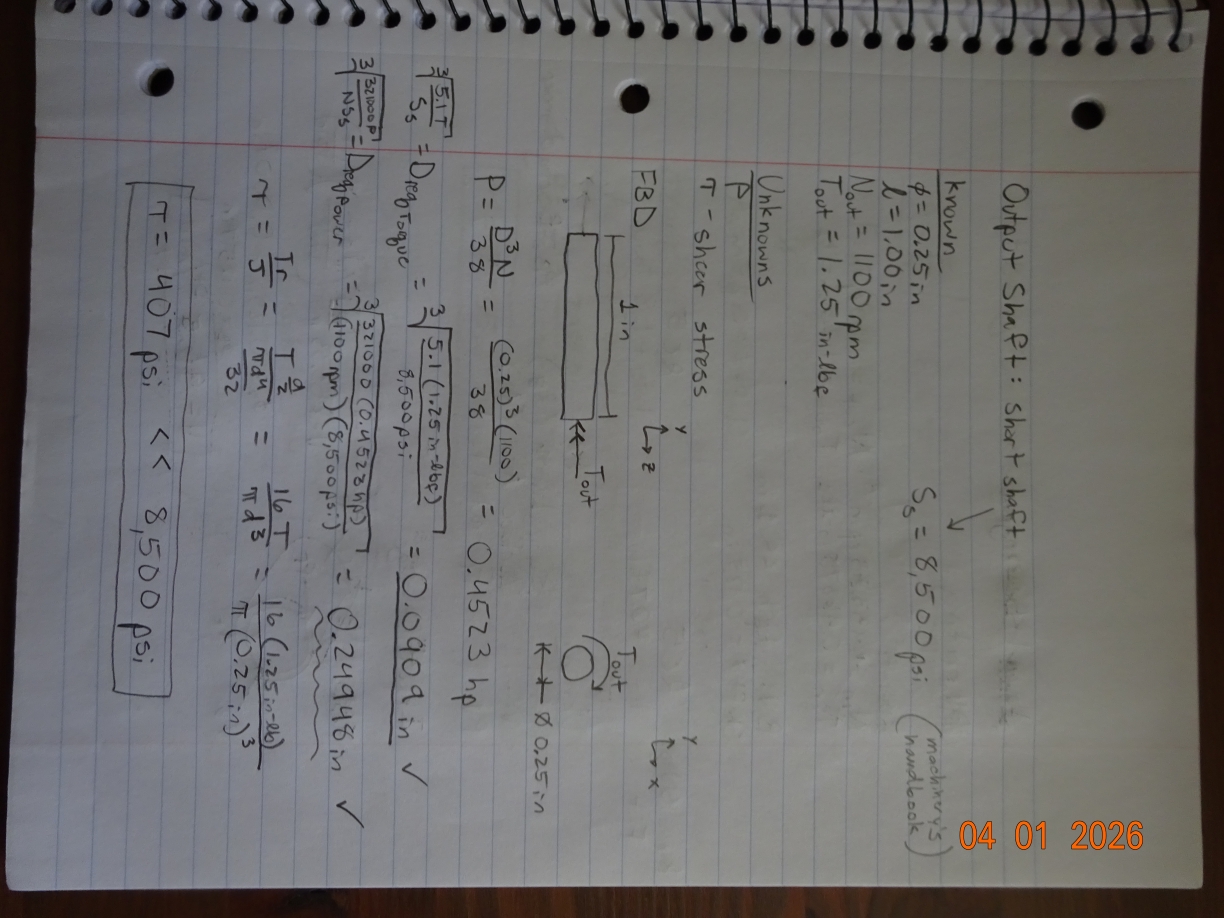 Output Shaft: short shaft
known
φ = 0.25 in
l = 1.00 in
Nout = 1100 rpm
Tout = 1.25 in-lbf
Ss = 8,500 psi (machinery's handbook)
Unknowns
P
τ - shear stress
FBD
y
z
y
x
1 in
Tout
Tout
Ø 0.25 in
P = D³N/38 = (0.25)³(1100)/38 = 0.4523 hp
∛(5.1T/Ss) = Dreq,Torque = ∛(5.1(1.25 in-lbf)/8,500 psi) = 0.0909 in ✓
∛(321000P/NSs) = Dreq,Power = ∛(321000(0.4523 hp)/(1100 rpm)(8,500 psi)) = 0.24948 in ✓
τ = Tr/J = T d/2 / πd⁴/32 = 16T/πd³ = 16(1.25 in-lb)/π(0.25 in)³
τ = 407 psi << 8,500 psi
04 01 2026